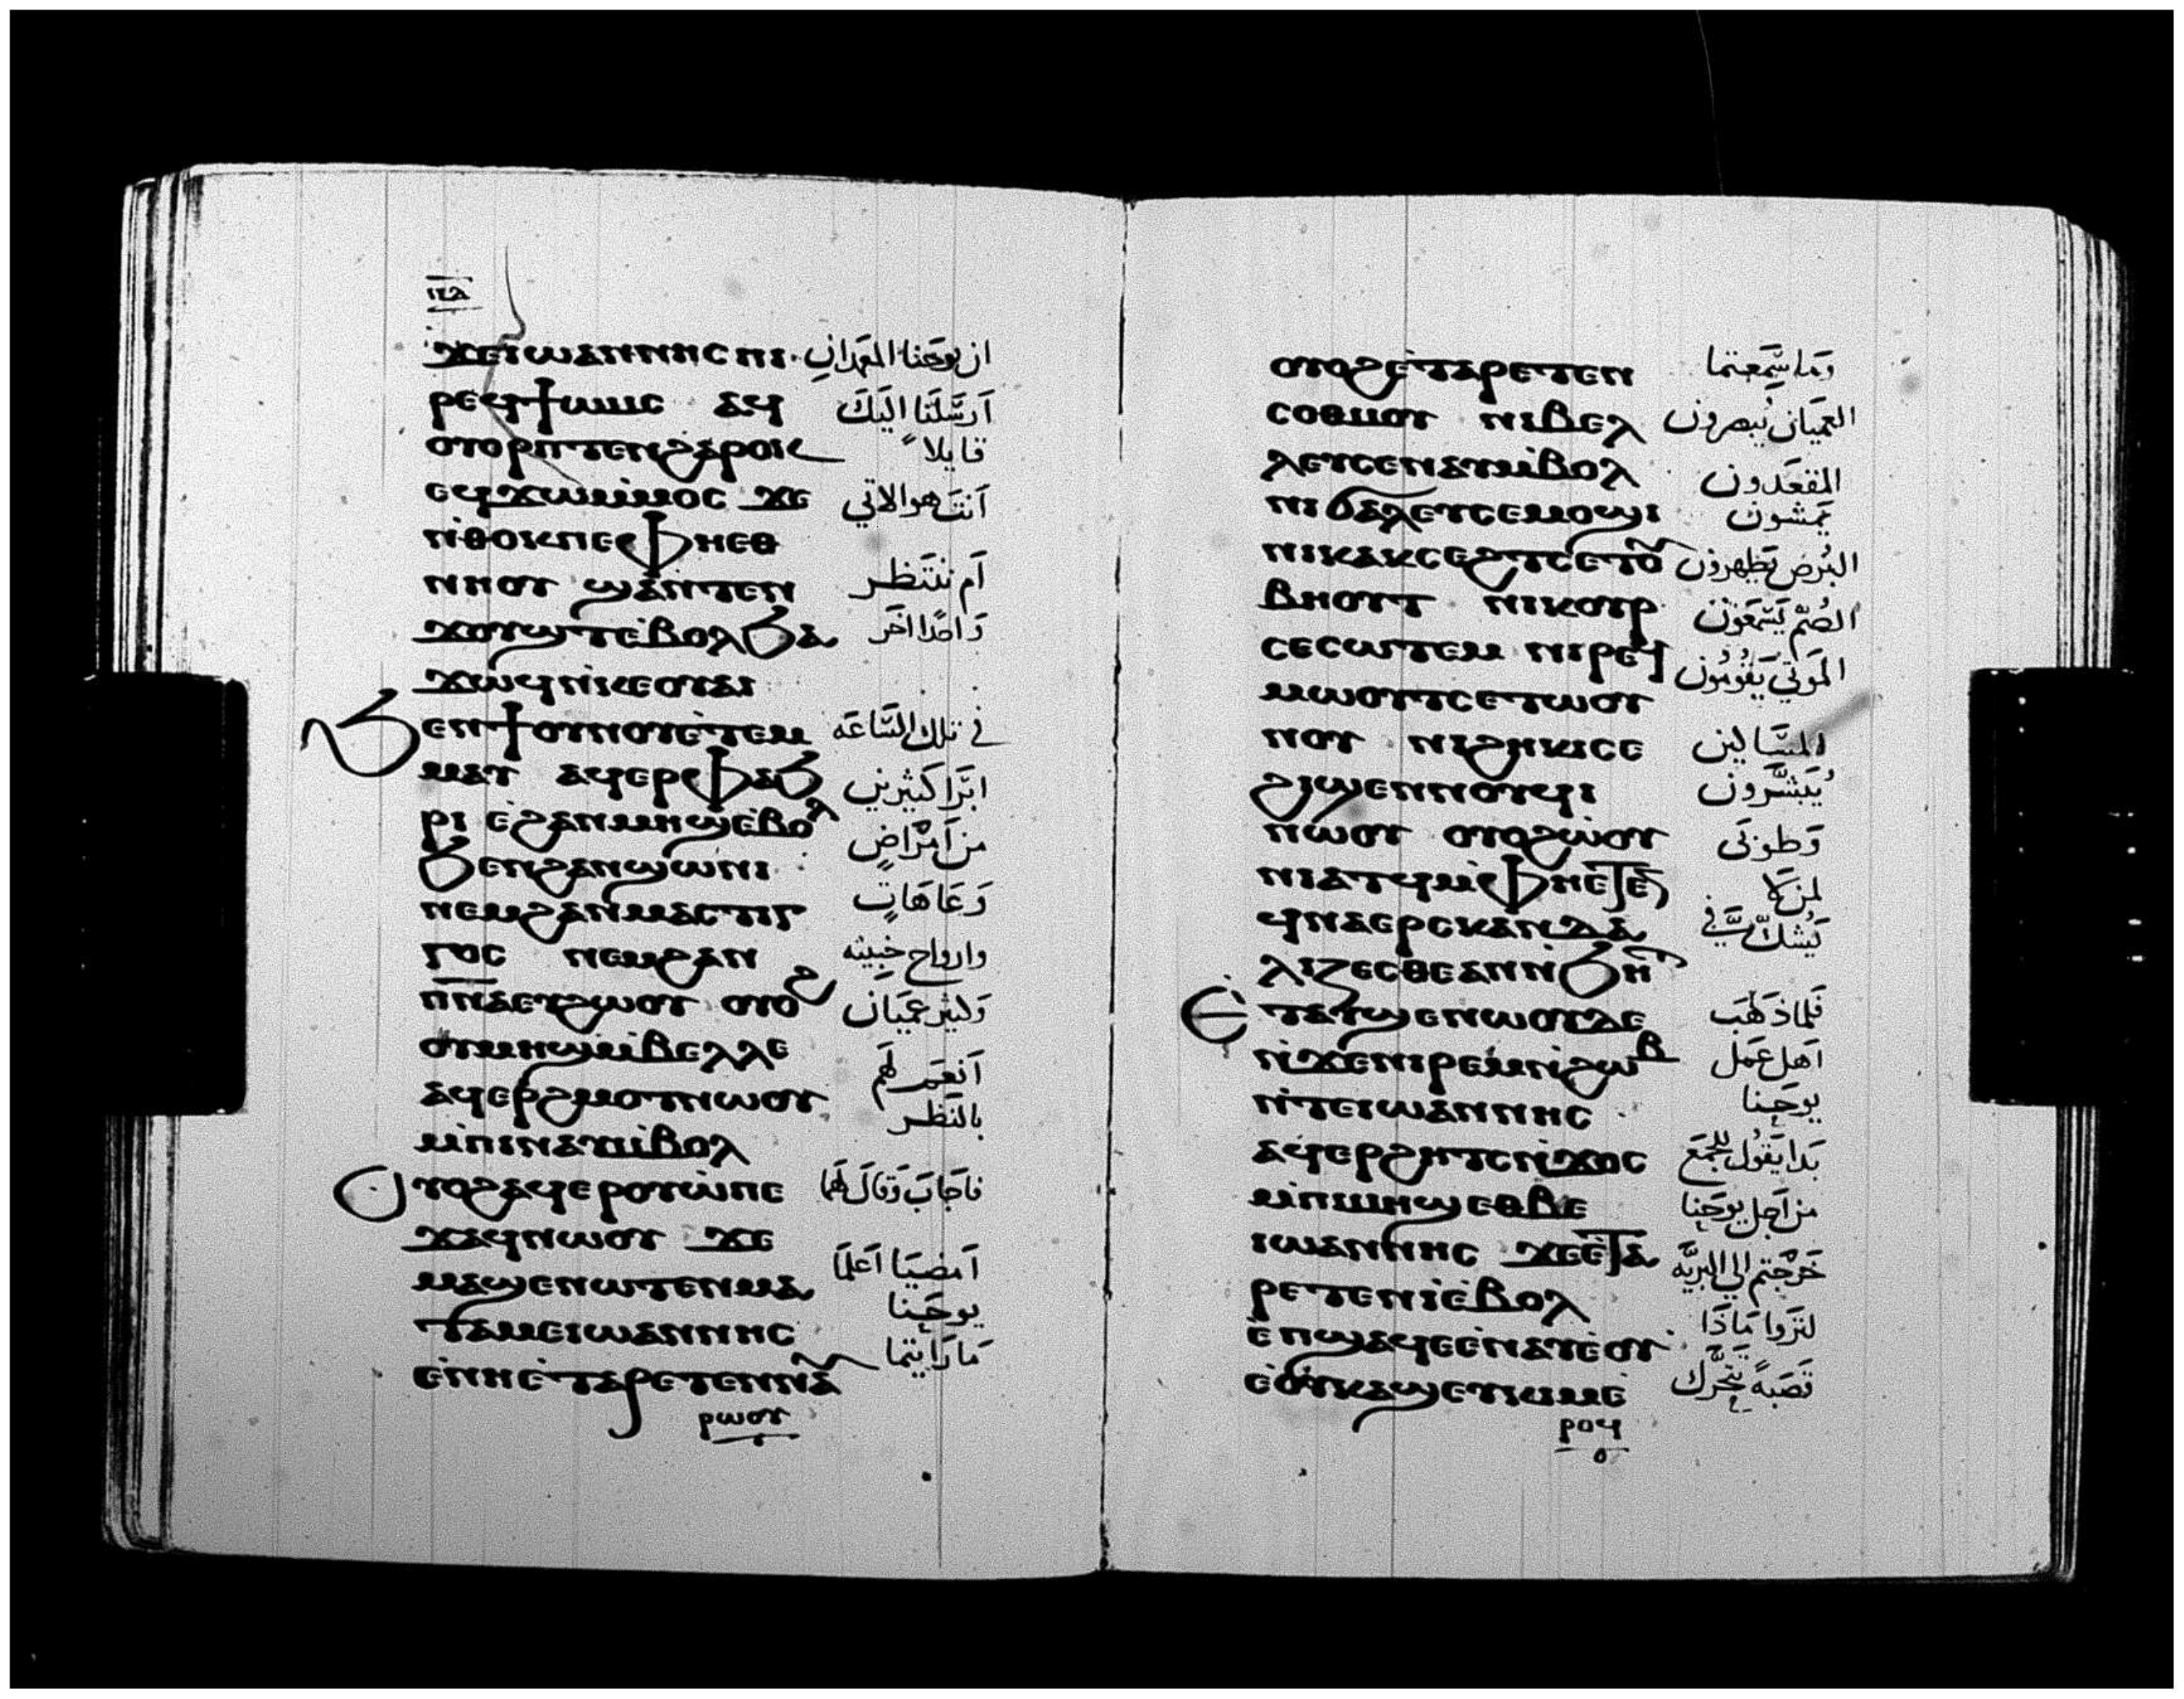 ⲡⲁ
ϫⲉⲓⲱⲁⲛⲛⲏⲥ ⲡⲓ
ان يوحَنا المعمدانِ
ⲣⲉϥϯⲱⲙⲥ ⲁϥ
اَرسَلَنا اليَكَ
ⲟⲩⲟⲣⲡⲧⲉⲛϩⲁⲣⲟⲕ
قايلاً
ⲉϥϫⲱⲙ̀ⲙⲟⲥ ϫⲉ
اَنتَ هو الاتي
ⲛ̀ⲑⲟⲕⲡⲉⲫⲏⲉⲑ
ⲛⲏⲟⲩ ϣⲁⲛⲧⲉⲛ
اَم ننتَظر
ϫⲟⲩϣⲧⲉ̀ⲃⲟⲗϧⲁ
وَاحدًا اخَر
ϫⲱϥⲛ̀ⲕⲉⲟⲩⲁⲓ
ϧⲉⲛϯⲟⲩⲛⲟⲩⲉ̀ⲧⲉⲙ
في تلك السَّاعَه
ⲙⲁⲩ ⲁϥⲉⲣⲫⲁϧ
ابرَا كثيرينِ
ⲣⲓ ⲉ̀ϩⲁⲛⲙⲏϣⲉ̀ⲃⲟⲗ
من اَمرَاضٍ
ϧⲉⲛϩⲁⲛϣⲱⲛⲓ
ⲛⲉⲙϩⲁⲛⲙⲁⲥⲧⲓⲅ
وَعَاهَاتٍ
ⲅⲟⲥ ⲛⲉⲙϩⲁⲛ
وارواح خبيثه
ⲡ̅ⲛ̅ⲁⲉⲩϩⲱⲟⲩ ⲟⲩⲟϩ
وَكثير عميَان
ⲟⲩⲙⲏϣⲙ̀ⲃⲉⲗⲗⲉ
ⲁϥⲉⲣϩⲙⲟⲧⲛⲱⲟⲩ
اَنعَمَ لهَم
بالنَظر
ⲙ̀ⲡⲓⲛⲁⲩⲙ̀ⲃⲟⲗ
ⲟⲩⲟϩⲁϥⲉⲣⲟⲩⲱ̀ⲡⲉ
فاجَابَ وَقالَ لهَما
ϫⲁϥⲛⲱⲟⲩ ϫⲉ
ⲙⲁϣⲉⲛⲱⲧⲉⲛⲙⲁ
اَمضيَا اَعلَما
ⲧⲁⲙⲉⲓⲱⲁⲛⲛⲏⲥ
يوحَنا
ⲉ̀ⲛⲏⲉ̀ⲧⲁⲣⲉⲧⲉⲛⲛⲁⲩ
مَا رَايتما
ⲣⲱⲟⲩ
ⲟⲩⲟϩⲉ̀ⲧⲁⲣⲉⲧⲉⲛ
وَمَا سَمعتما
ⲥⲟⲑⲙⲟⲩ ⲛⲓⲃⲉⲗ
العميَان يُبصرون
ⲗⲉⲩⲥⲉⲛⲁⲩⲙ̀ⲃⲟⲗ
المقعَدون
ⲛⲓϭⲁⲗⲉⲩⲥⲉⲙⲟϣⲓ
يَمشون
ⲛⲓⲕⲁⲕⲥⲉϩⲧⲥⲉⲧⲟⲩ
البُرص يَطهرون
ⲃⲏⲟⲩⲧ ⲛⲓⲕⲟⲩⲣ
الصُم يَسَمعَون
ⲥⲉⲥⲱⲧⲉⲙ ⲛⲓⲣⲉϥ
المَوتي يَقومُون
ⲙⲱⲟⲩⲧⲥⲉⲧⲱⲟⲩ
ⲛⲟⲩ ⲛⲓϩⲏⲕⲓⲥⲉ
المسَاكين
ϩⲓϣⲉⲛⲛⲟⲩϥⲓ
يُبَشَّرون
ⲛⲱⲟⲩ ⲟⲩⲟϩⲱ̀ⲟⲩ
وَطوبَى
ⲛⲓⲁⲧϥⲙ̀ⲫⲏⲉ̀ⲧⲉ
لمن لاَ
ϥⲛⲁⲉⲣⲥⲕⲁⲛⲇⲁ
يَشكّ فيَّ
ⲗⲓⲍⲉⲥⲑⲉⲁⲛⲛ̀ϧⲏⲧ
ⲉ̀ⲧⲁⲩϣⲉⲛⲱⲟⲩⲇⲉ
فَلماذهَبَ
ⲛ̀ϫⲉⲛⲓⲣⲉⲙⲛ̀ϩⲱⲃ
اَهل عَمل
ⲛ̀ⲧⲉⲓⲱⲁⲛⲛⲏⲥ
يوحَنا
ⲁϥⲉⲣϩⲏⲧⲥⲛ̀ϫⲟⲥ
بَدا يَقول للجمَع
ⲙ̀ⲡⲙⲏϣⲉⲑⲃⲉ
من اَجل يوحَنا
ⲓⲱⲁⲛⲛⲏⲥ ϫⲉⲉ̀ⲧⲁ
خَرَجتم الي البريَّه
ⲣⲉⲧⲉⲛⲓ̀ⲉ̀ⲃⲟⲗ
ⲉ̀ⲡϣⲁϥⲉⲉ̀ⲛⲁⲩⲉ̀ⲟⲩ
لتَروا مَاذَا
ⲉ̀ⲟⲩⲕⲁϣⲉⲩⲕⲓⲙⲉ̀
قصَبةً تَتحَرَّك
ⲣⲟϥ